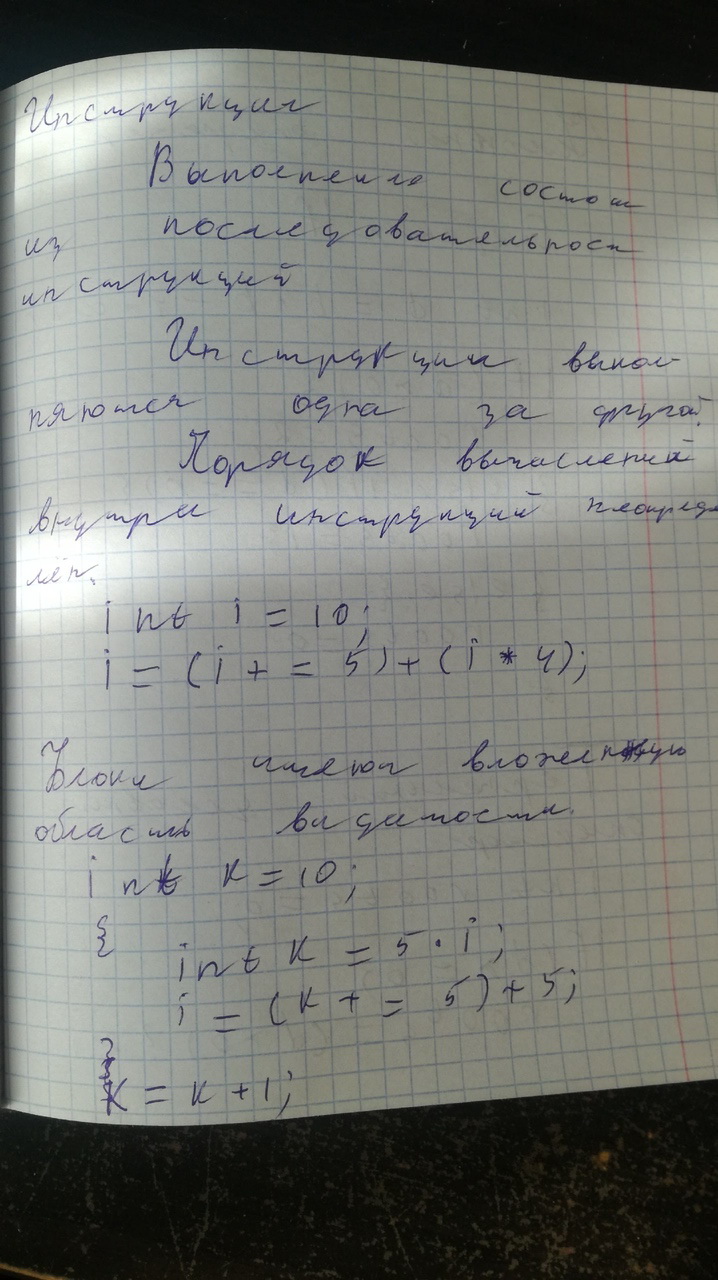 Инструкции
Выполнение состои
из последовательност
инструкций
Инструкции выпол-
няются одна за другой.
Порядок вычислений
внутри инструкций неопреде
лён.
int i = 10;
i = (i += 5) + (i * 4);
Блоки имеют вложенную
область видимости.
int k = 10;
{
int k = 5 · i;
i = (k += 5) + 5;
}
k = k + 1;